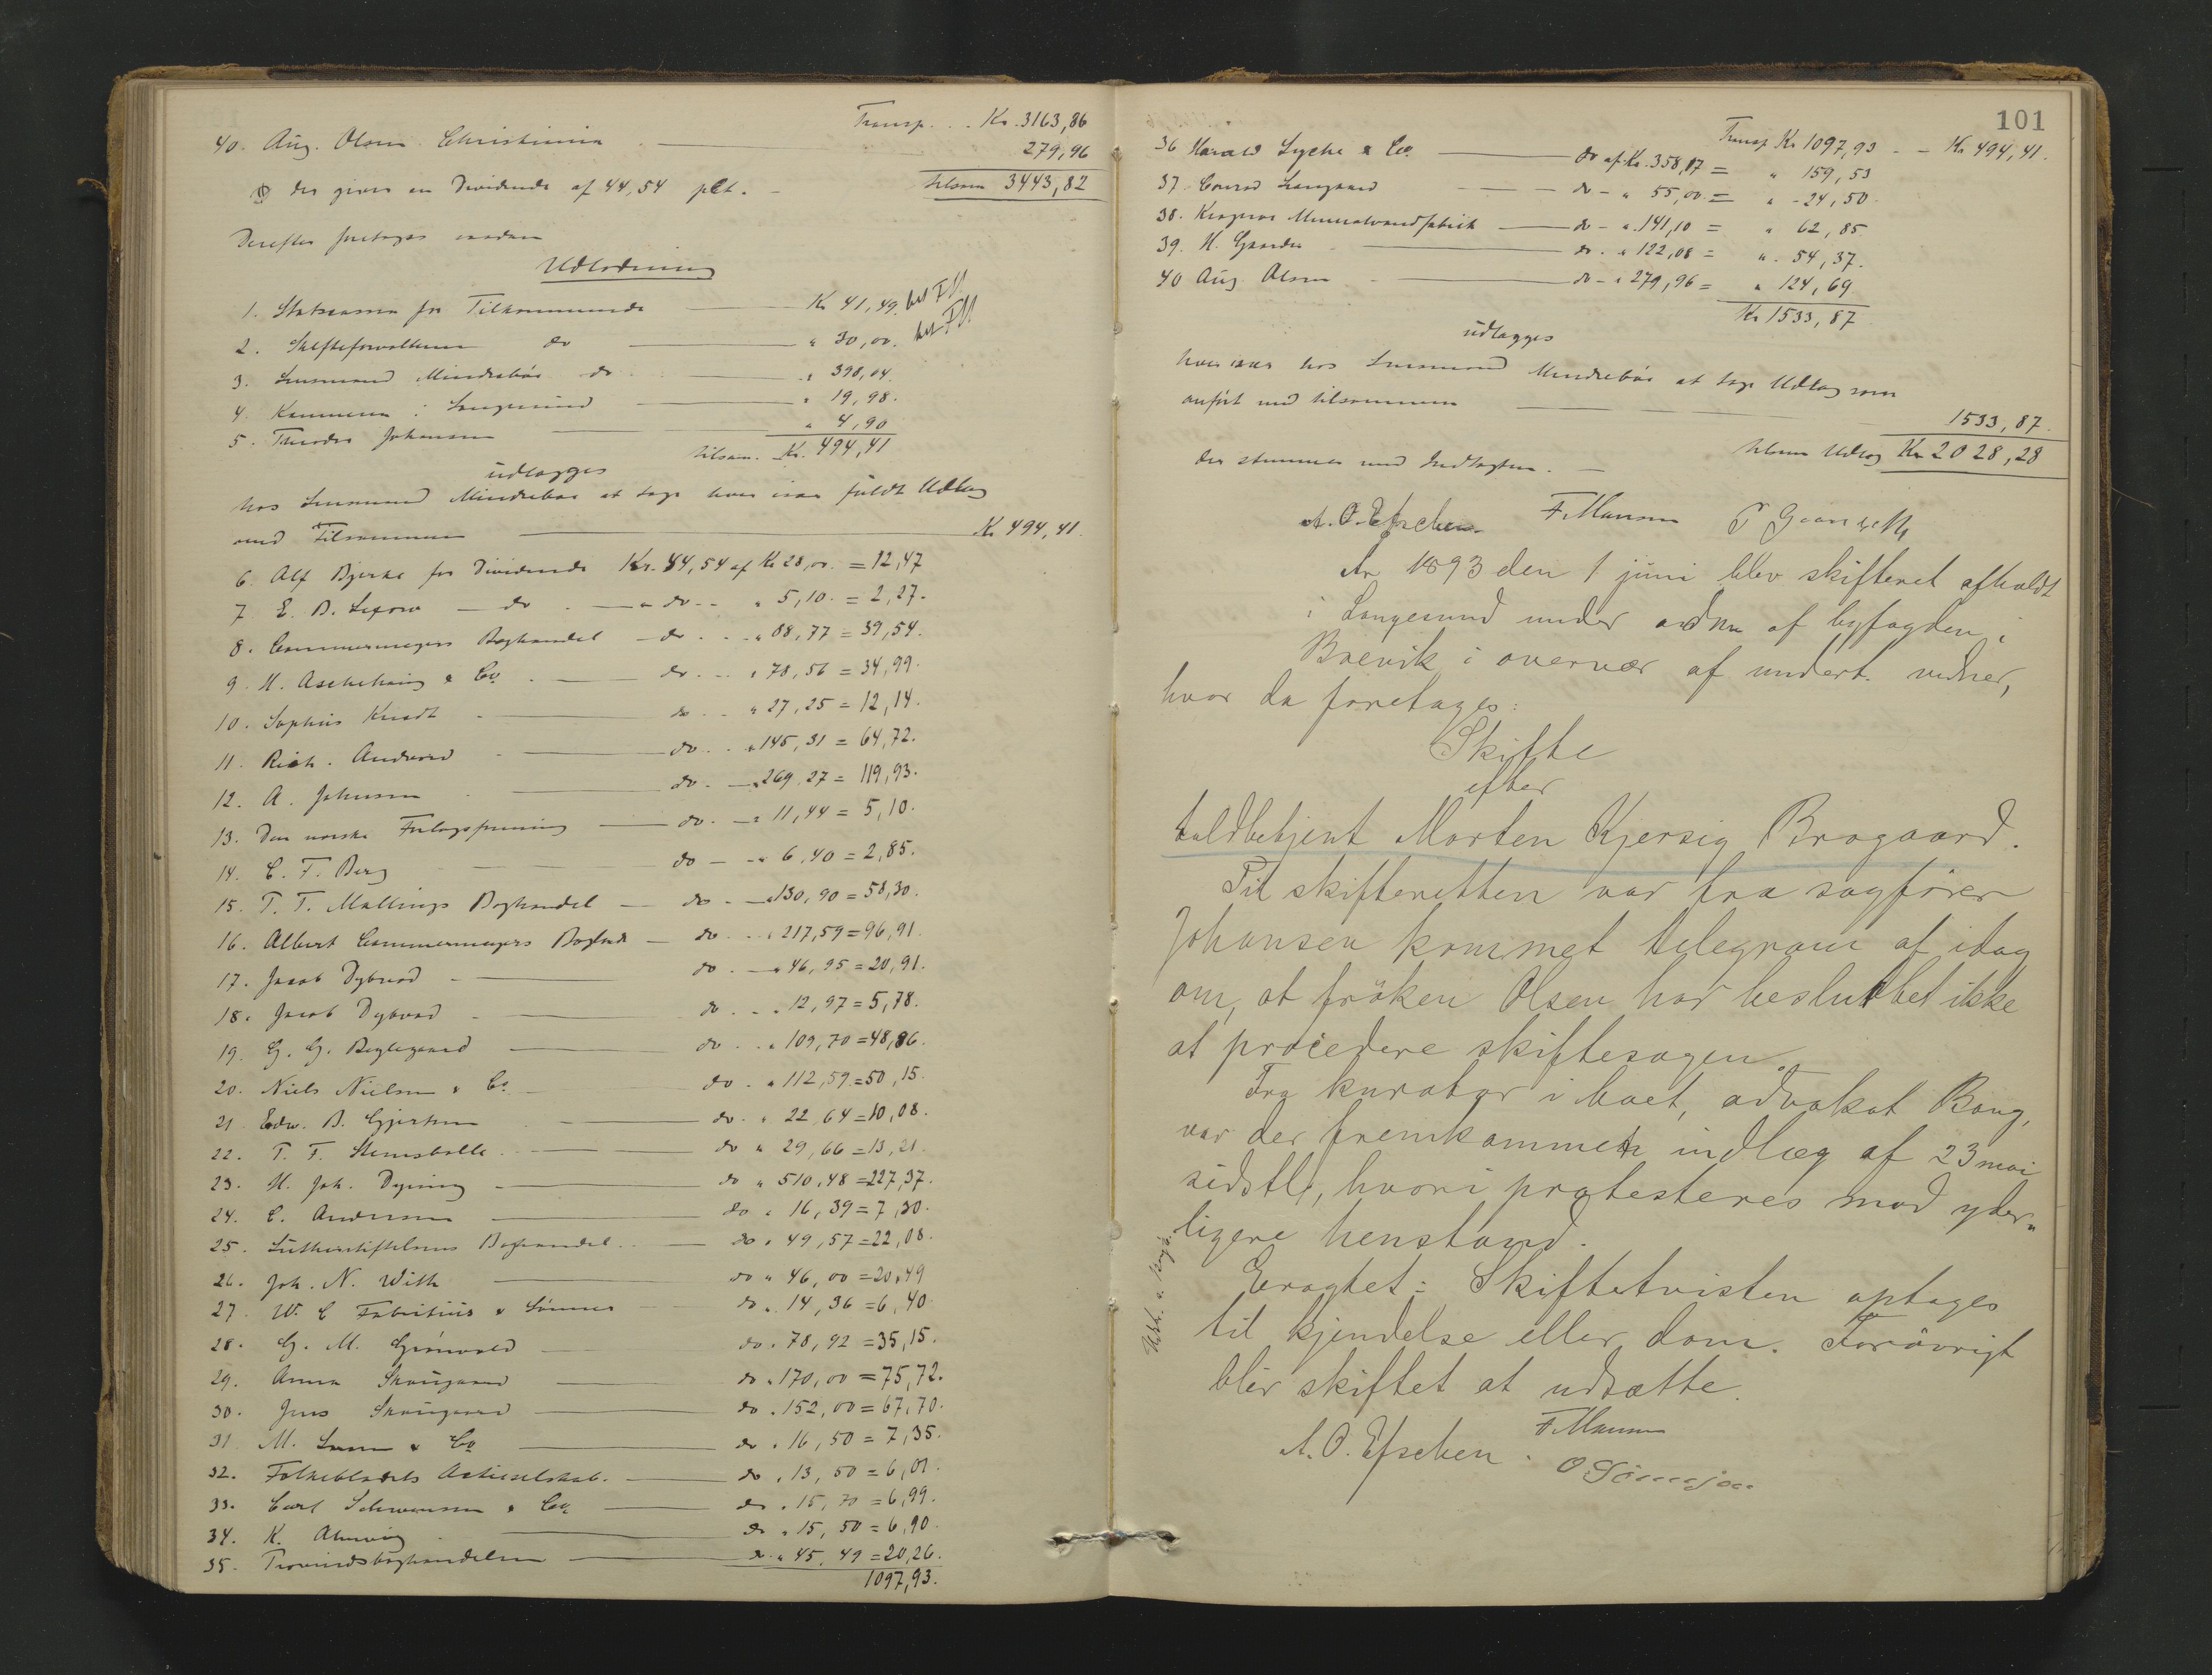 Transp. . . Kr. 3163,86
40. Aug. Olsen Christiania 279,96
der giver en Dividende af 44,54 pCt. - tilsam 3443,82
Derefter foretages saadan
Udlodning
1. Statscassen for Tilkommende Kr 41,49. bet FM
2. Skifteforvalteren do " 30,00. bet FM
3. Lensmand Mindrebøe do " 398,04.
4. Kemneren i Langesund " 19,98.
5. Theodor Johansen " 4,90
tilsam. Kr. 494,41
udlægges
hos Lensmand Mindrebøe at tage hver især fuldt Udlæg
med Tilsammen Kr 494,41.
6. Alf Bjercke for Dividende Kr. 44,54 af Kr 28,00. = 12,47
7. E. B. do - " do - - " 5,10. = 2,27.
8. Cammermeyers Boghandel - do . - " 88,77 = 39,54.
9. H. Aschehoug & Co. do. - . " 78,56 = 34,99.
10. Sophus Kundt do - . " 27,25 = 12,14.
11. Rich. Andvord do . . " 145,31 = 64,72.
12. A. Johnsen do. - " 269,27 = 119,93.
13. Den norske Forlagsforening do. - " 11,44 = 5,10.
14. C. F. Berg do - - " 6,40 = 2,85.
15. P. T. Mallings Boghandel - do - " 130,90 = 58,30.
16. Albert Cammermeyers Boghndl - do - . " 217,59 = 96,91.
17. Jacob Dybwad do . - " 46,95 = 20,91.
18. Jacob Dybwad do . . " 12,97 = 5,78.
19. G. G. do . . " 109,70 = 48,86.
20. Niels Nielsen & Co. do . " 112,59 = 50,15.
21. Edw. B. Gjertsen do . " 22,64 = 10,08.
22. P. F. Steensballe do " 29,66 = 13,21.
23. H. Joh. Dyring do " 510,48 = 227,37.
24. C. Andersen do " 16,39 = 7,30.
25. Lutherstiftelsens Boghandel. do " 49,57 = 22,08.
26. Joh. N. With do " 46,00 = 20,49
27. W. C Fabritius & Sønner do " 14,36 = 6,40
28. G. M. Grönvold do " 78,92 = 35,15.
29. Anna Skougaard do " 170,00 = 75,72.
30. Jens Skougaard do " 152,00 = 67,70.
31. M. & Co do " 16,50 = 7,35.
32. Folkebladets Actieselskab. do " 13,50 = 6,01.
33. Carl Schwensen & Co. do " 15,70 = 6,99.
34. K. do " 15,50 = 6,90.
35. Provindsboghandelen do " 45,49 = 20,26.
1097,93.
101
Transp Kr 1097,93 - - Kr 494,41.
36 Harald Lyche & Co. do af Kr. 358,17 = " 159,53
37. Conrad Langaard - - do - " 55,00 = " - 24,50.
38. Kragerøs Mineralvandfabrik do - " 141,10 = " 62,85
39. H. Gaarder do . " 122,08 = " 54,37.
40 Aug Olsen do - " 279,96 = " 124,69
Kr 1533,87
udlægges
hver især hos Lensmand Mindrebøe at tage Udlæg som
anført med tilsammen 1533,87.
der stemmer med Indtægten. - tilsam Udlæg Kr 2028,28
A. O. Efscben. F. Mansen
År 1893 den 1 juni blev skifteret afholdt
i Langesund under ordn af byfogden i
Brevik i overvær af undert. vidner,
hvor da foretages:
Skifte
efter
toldbetjent Morten Kjersig Brogaard.
Til skifteretten var fra sagfører
Johansen kommet telegram af idag
om, at frøken Olsen har besluttet ikke
at procedere skiftesagen.
Fra kurator i boet, advokat Bang,
var der fremkommet indlæg af 23 mai
sidstl., hvori protesteres mod yder-
ligere henstand.
Eragtet: Skiftetvisten optages
til kjendelse eller dom. Forøvrigt
blir skiftet at udsætte.
F. Mansen
A. O. Efscben.